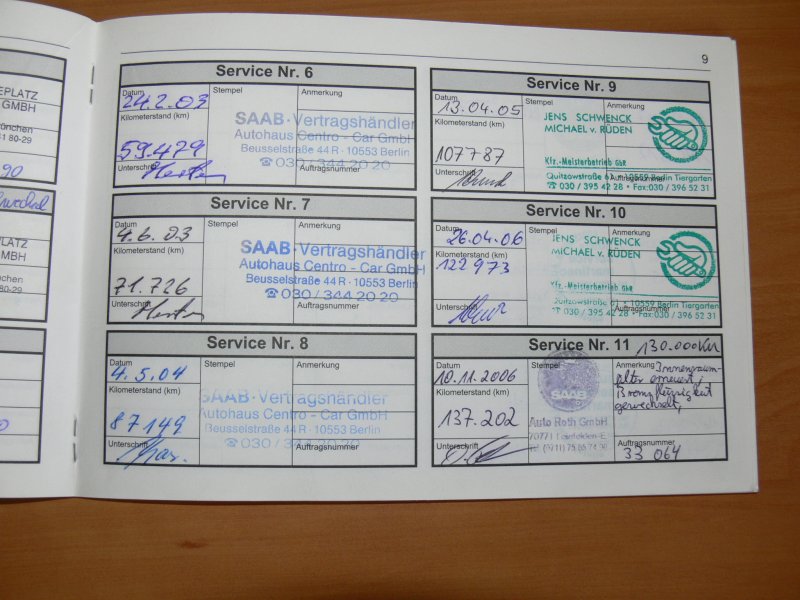 EPLATZ
GMBH
ünchen
90
PLATZ
GMBH
9
Service Nr. 6
Datum
Stempel
Anmerkung
24.2.03
Kilometerstand (km)
59.479
Unterschrift
Auftragsnummer
SAAB-Vertragshändler
Autohaus Centro - Car GmbH
Beusselstraße 44 R · 10553 Berlin
☎ 030 / 344 20 20
Service Nr. 7
Datum
Stempel
Anmerkung
4.6.03
Kilometerstand (km)
71.726
Unterschrift
Auftragsnummer
SAAB-Vertragshändler
Autohaus Centro - Car GmbH
Beusselstraße 44 R · 10553 Berlin
☎ 030 / 344 20 20
Service Nr. 8
Datum
Stempel
Anmerkung
4.5.04
Kilometerstand (km)
87149
Unterschrift
Auftragsnummer
SAAB-Vertragshändler
Autohaus Centro - Car GmbH
Beusselstraße 44 R · 10553 Berlin
☎ 030 / 344 20 20
Service Nr. 9
Datum
Stempel
Anmerkung
13.04.05
Kilometerstand (km)
107787
Unterschrift
Auftragsnummer
JENS SCHWENCK
MICHAEL v. RÜDEN
Kfz.-Meisterbetrieb GbR
Quitzowstraße 61 · 10559 Berlin Tiergarten
☎ 030 / 395 42 28 · Fax: 030 / 396 52 31
Service Nr. 10
Datum
Stempel
Anmerkung
26.04.06
Kilometerstand (km)
122973
Unterschrift
Auftragsnummer
JENS SCHWENCK
MICHAEL v. RÜDEN
Kfz.-Meisterbetrieb GbR
Quitzowstraße 61 · 10559 Berlin Tiergarten
☎ 030 / 395 42 28 · Fax: 030 / 396 52 31
Service Nr. 11
130.000 Km
Datum
Stempel
Anmerkung
10.11.2006
Kilometerstand (km)
137.202
Unterschrift
SAAB
Auto Roth GmbH
Innenraum-
filter erneuert,
Bremsflüssigkeit
gewechselt,
Auftragsnummer
33 064